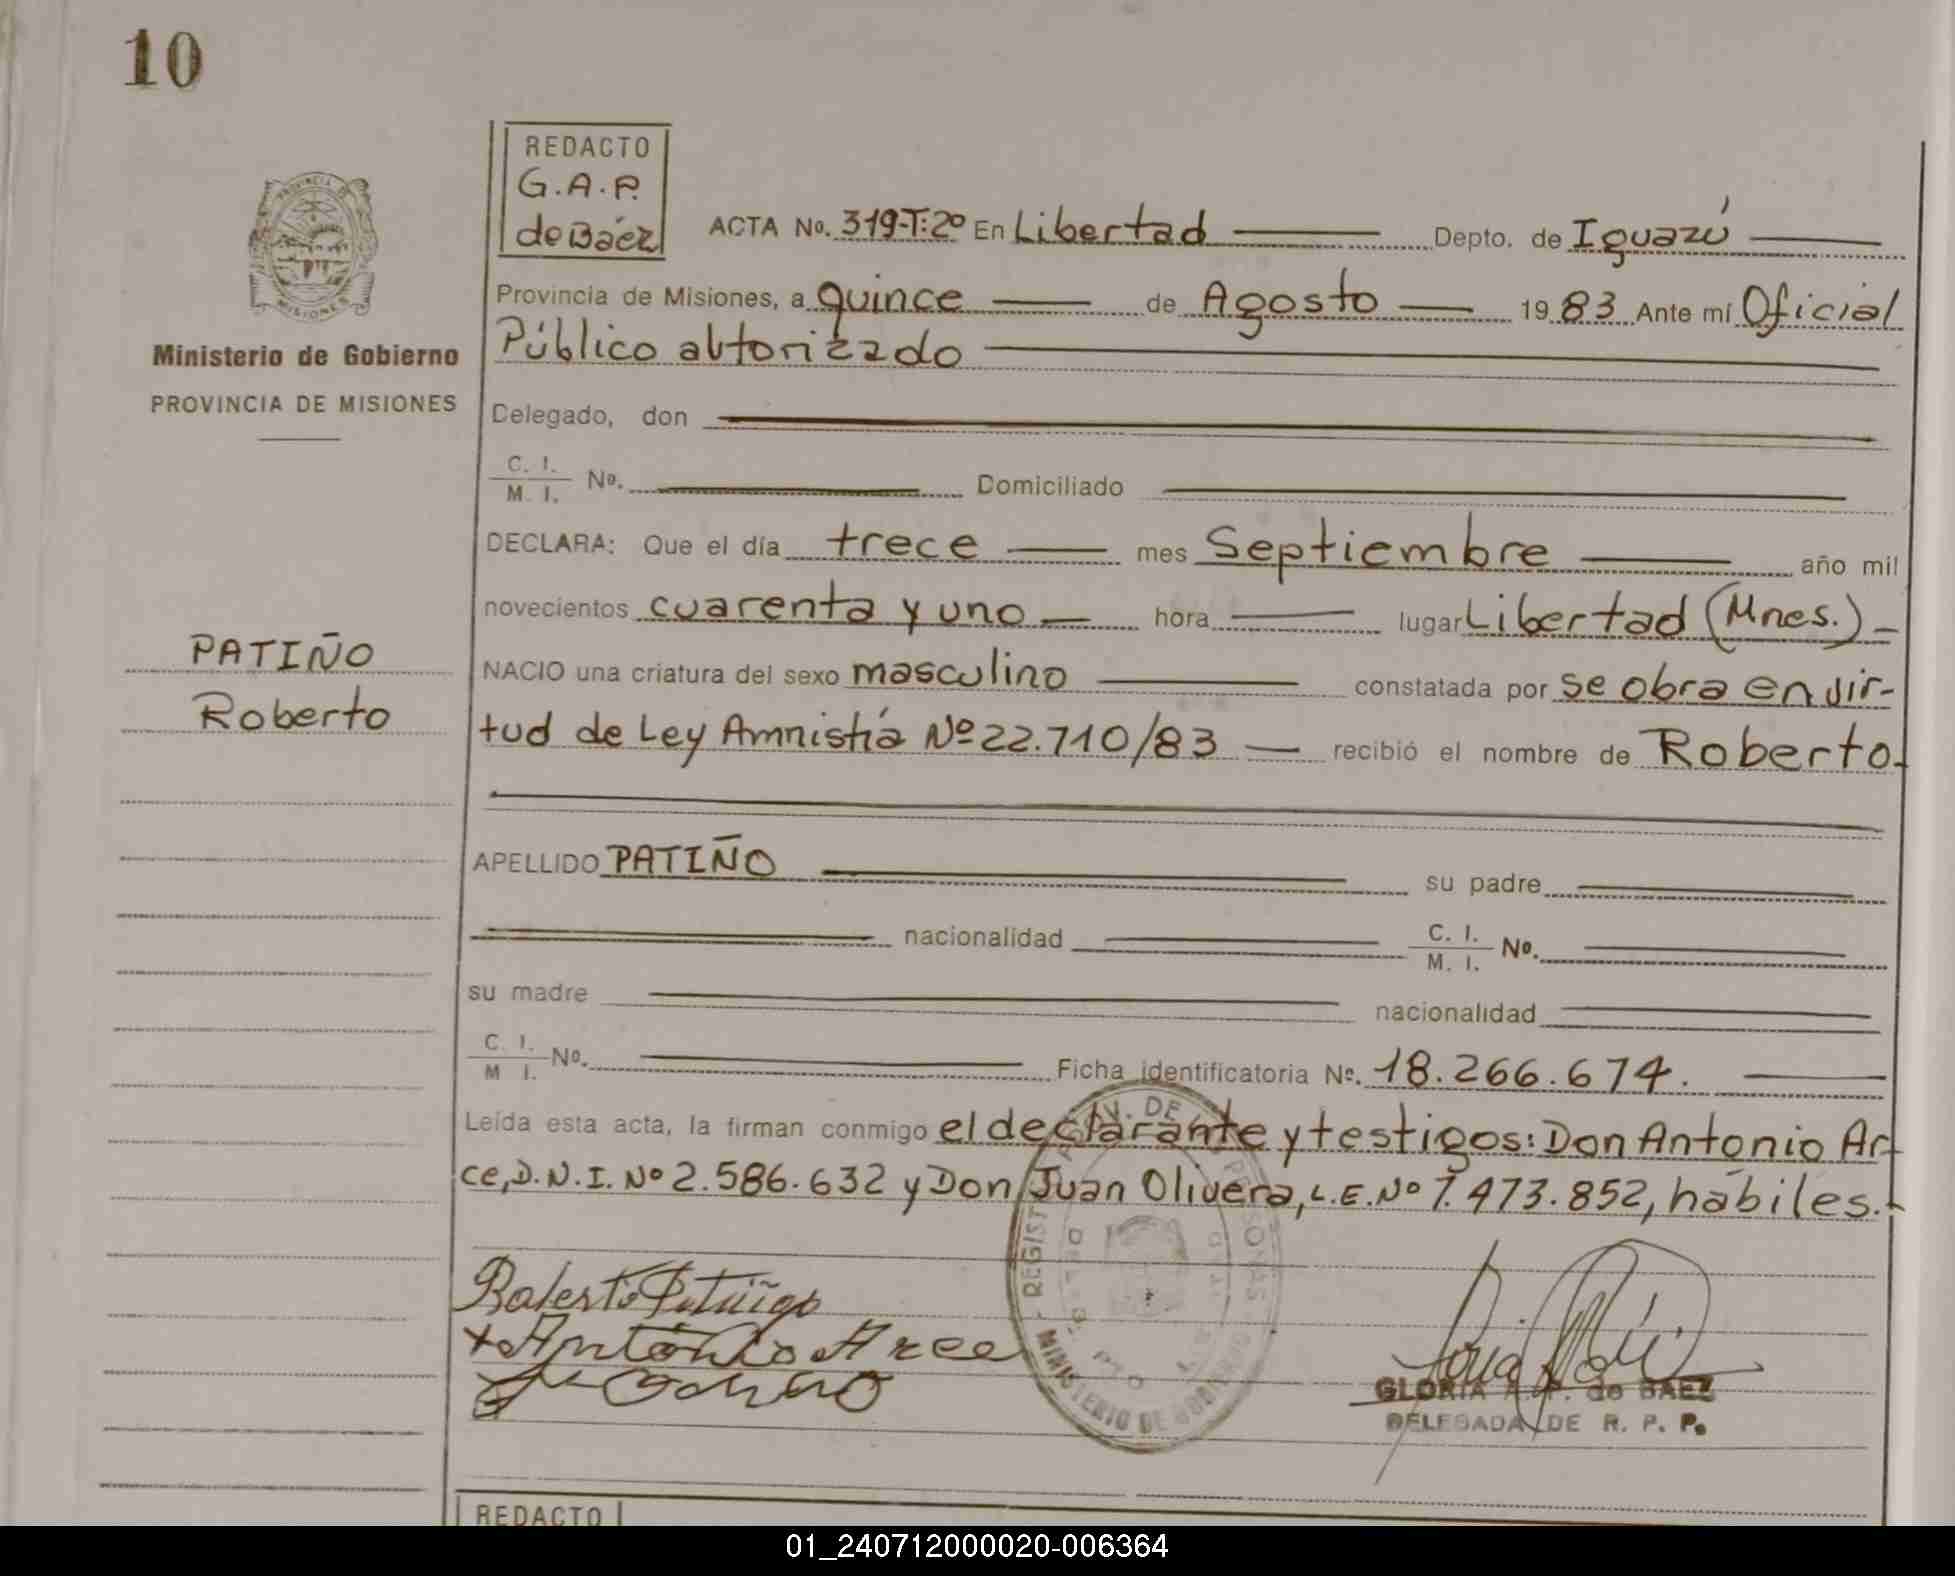 10
REDACTO
G.A.P.
de Báez
ACTA No. 319-T:2º En Libertad Depto. de Iguazú
Provincia de Misiones, a quince de Agosto 1983 Ante mí Oficial
Público autorizado
Ministerio de Gobierno
PROVINCIA DE MISIONES
Delegado, don
C. I.
M. I. No. Domiciliado
DECLARA: Que el día trece mes Septiembre año mil
novecientos cuarenta y uno hora lugar Libertad (Mnes.)
PATIÑO
Roberto
NACIO una criatura del sexo masculino constatada por se obra en vir-
tud de Ley Amnistía Nº 22.710/83 recibió el nombre de Roberto
APELLIDO PATIÑO su padre
nacionalidad C. I.
M. I. No.
su madre nacionalidad
C. I.
M I. No. Ficha identificatoria No. 18.266.674.
Leída esta acta, la firman conmigo el declarante y testigos: Don Antonio Ar-
ce, D.N.I. Nº 2.586.632 y Don Juan Olivera, L.E. Nº 7.473.852, hábiles.-
Antonio Arce
MINISTERIO DE GOBIERNO
GLORIA A. P. de BAEZ
DELEGADA DE R. P. P.
REDACTO
01_240712000020-006364